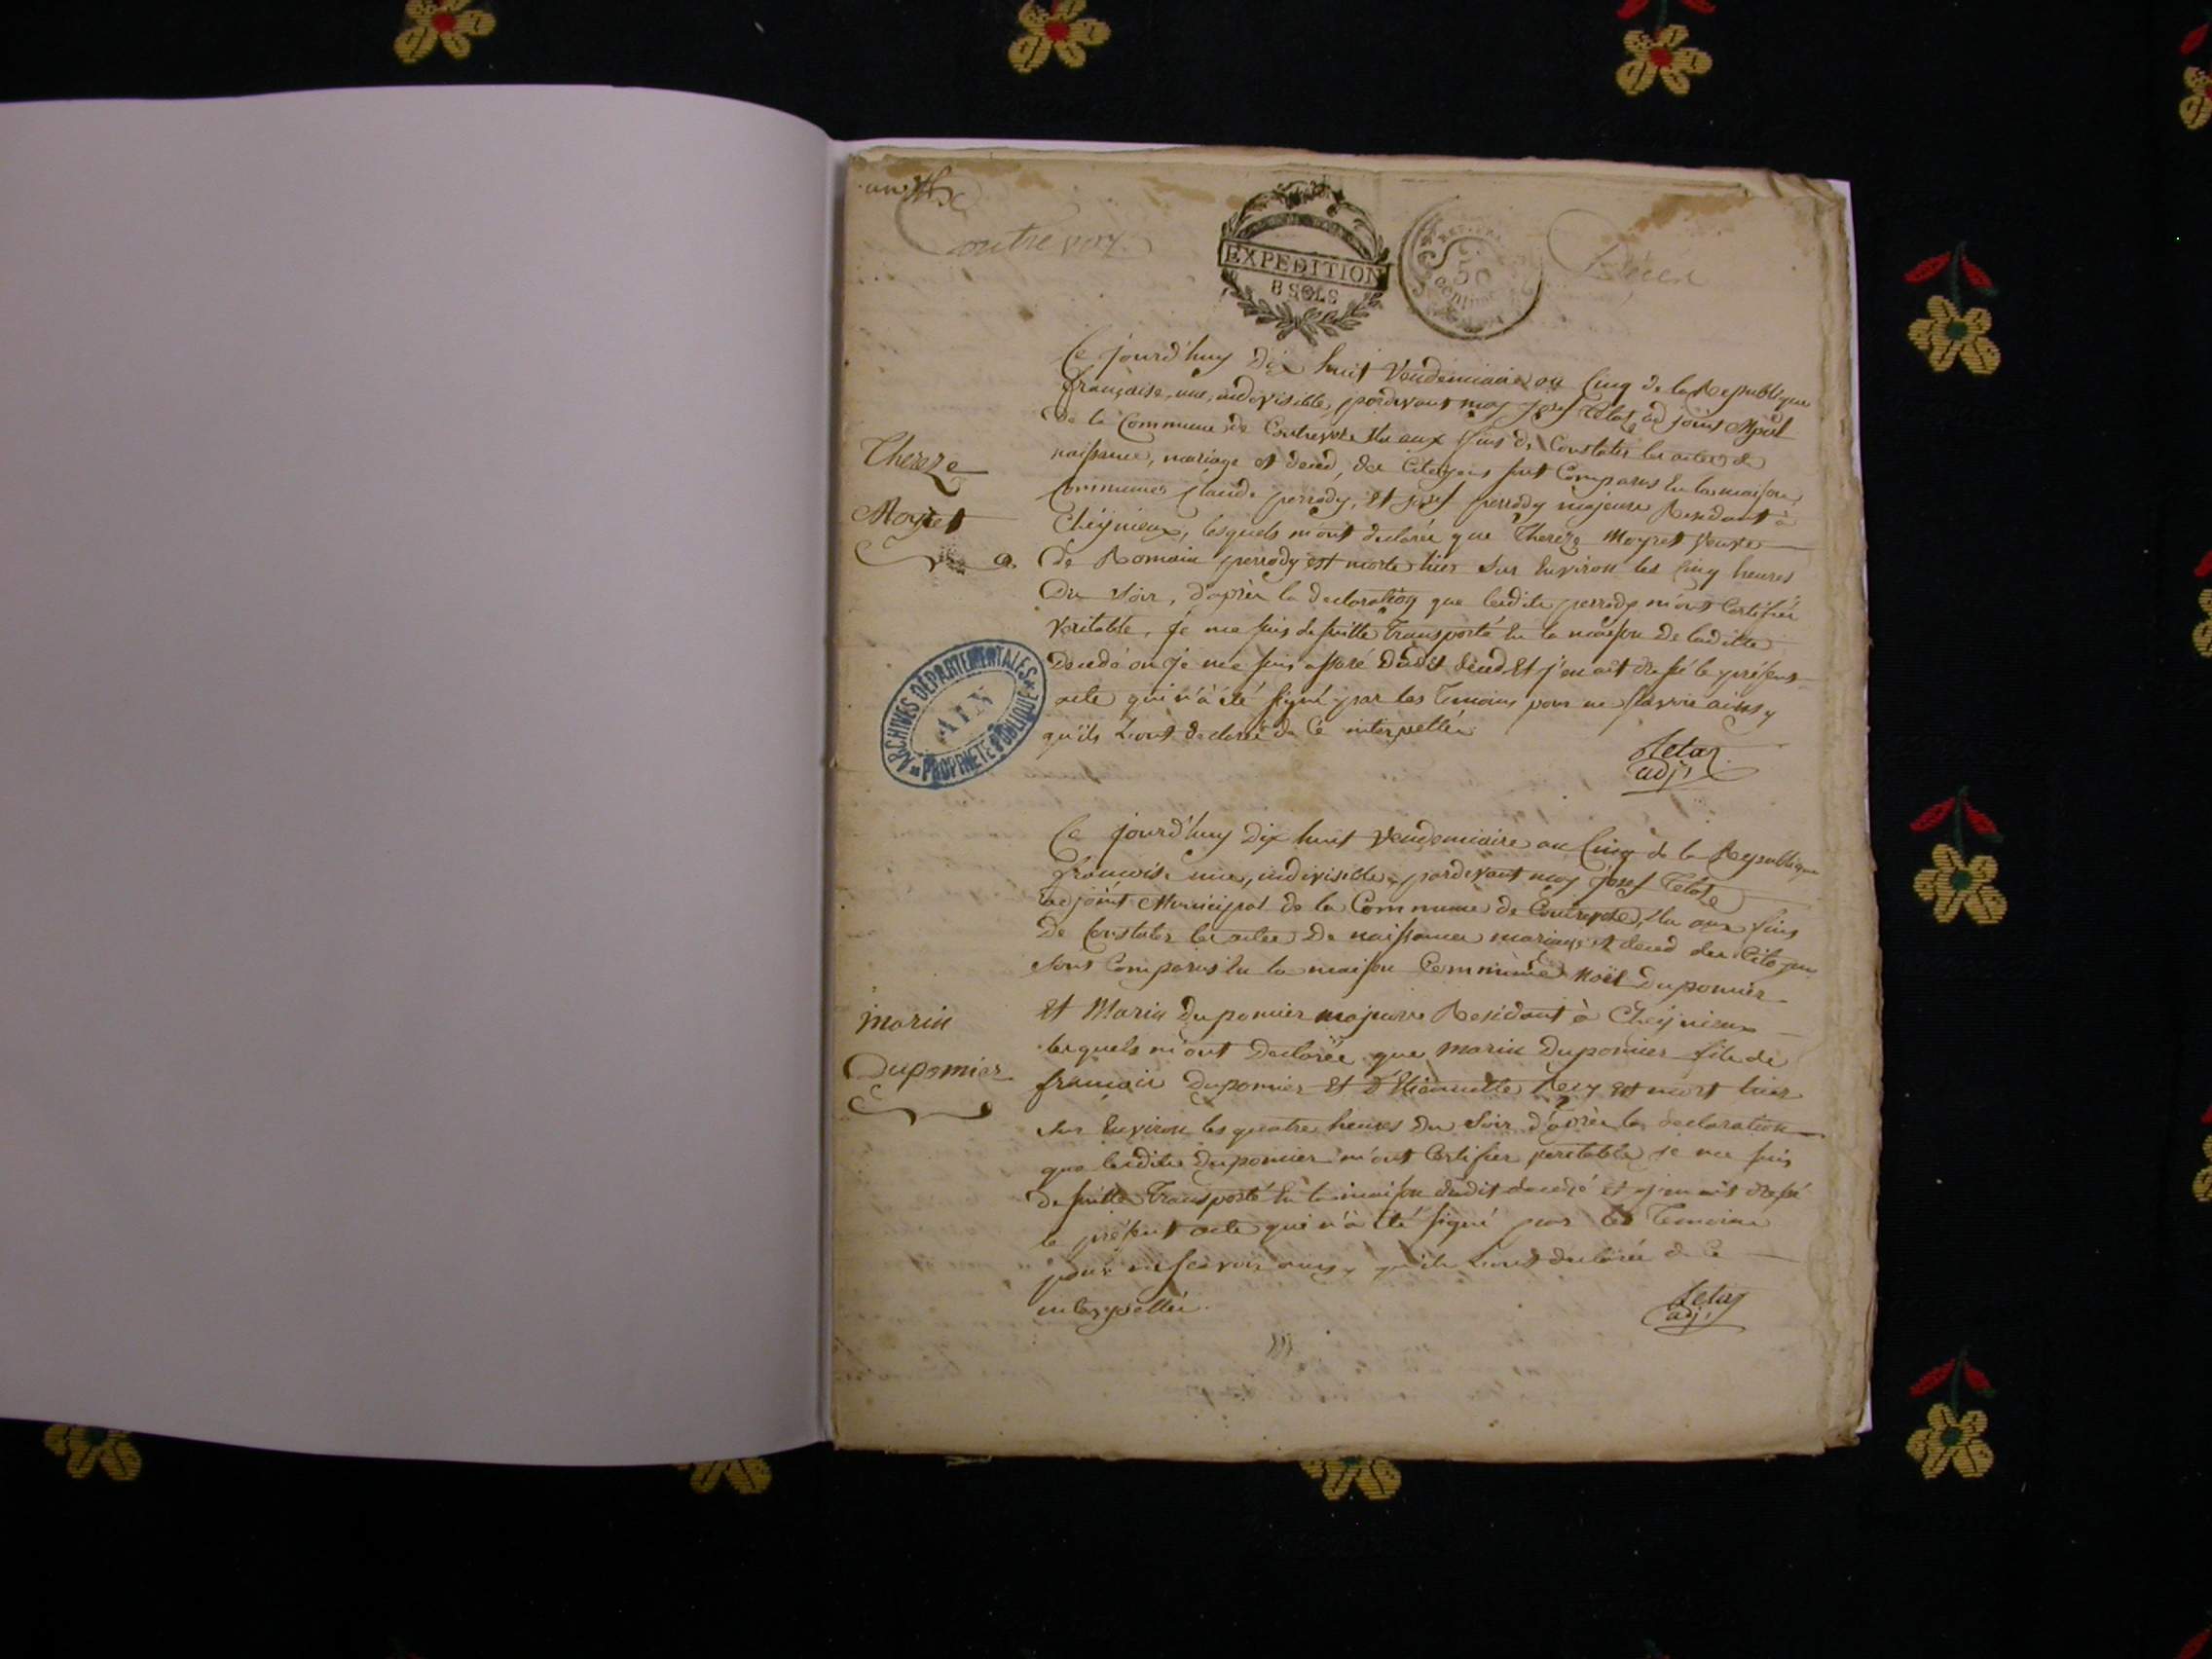 an 5e
Contrevoz
EXPEDITION
8 SOLS
50
centimes
Décès
Ce jourd'huy Dix huit Vendemiaire an Cinq de la Republique
française, une, indivisible, pardevant moy Josef tetaz adjoint Mpal
De la Commune de Contrevoz Elu aux fins de Constater les actes de
naissance, mariage et deced, des Citoyens sont Comparus En la maison
Commune Claude perrody, et josef perrody majeure Residant à
Cheignieux, lesquels m'ont declarée que Thereze Moyret veuve
De Romain perrody est morte hier sur Environ les Cinq heures
Du Soir, d'après la declaration que lesdits perrody m'ont Certifiée
veritable, je me suis de suitte Transporté En la maison de laditte
Decedé ou je me suis assuré dudit deced Et j'en ait dressé le present
acte qui n'à été signé par les Temoins pour ne sçavoir ainsy
qu'ils L'ont declarée de Ce interpellée
Thereze
Moyret
ARCHIVES DÉPARTEMENTALES
AIN
PROPRIÉTÉ PUBLIQUE
tetaz
adj,
Ce jourd'huy Dix huit Vendemiaire an Cinq de la Republique
francoise une, indivisible, pardevant moy Josef Tetaz
adjoint Municipal de la Commune de Contrevoz, Elu aux fins
De Constater les actes De naissance mariage et deced des Citoyens
sont Comparus En la maison Commune Noël Duponier
Et Marin Duponier majeure Residant à Cheignieux
lesquels m'ont declarée que marin Duponier fils de
francois Duponier Et d'Etiennette est mort hier
sur Environ les quatre heures Du Soir d'après la declaration
que lesdits Duponier m'ont Certifier veritable je me suis
de suitte Transporté En la maison dudit decedé et j'en ait dressé
le présent acte qui n'à été signé par les Temoins
pour ne sçavoir ainsy qu'ils L'ont declarée de Ce
interpellée.
marin
Duponier
tetaz
adj,